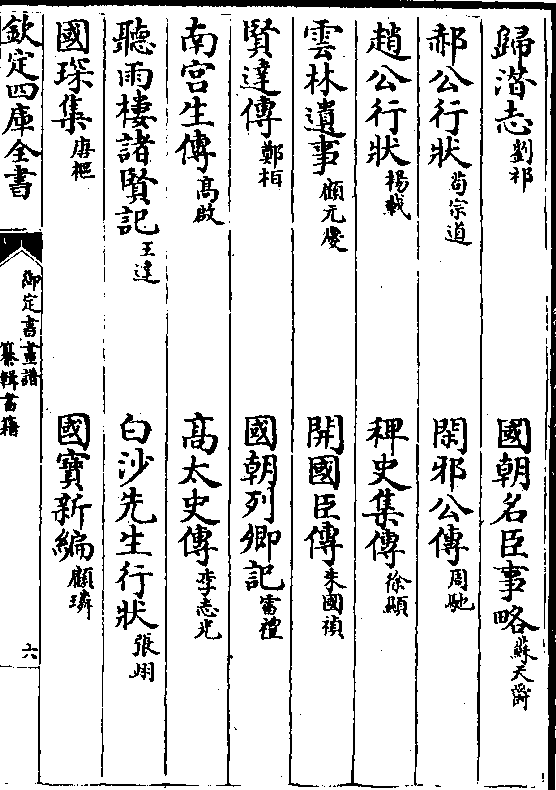 歸潛志劉祁 國朝名臣事略蘇天爵
郝公行狀茍宗道 閑邪公傳周馳
趙公行狀楊載 稗史集傳徐顯
雲林遺事顧元慶 開國臣傳朱國禎
賢達傳鄭柏 國朝列卿記雷禮
南宫生傳髙啟 髙太史傳李志光
聽雨樓諸賢記王達 白沙先生行狀張詡
國琛集唐樞 國寶新編顧璘
欽定四庫全書 御定書畫譜
纂輯書籍 六